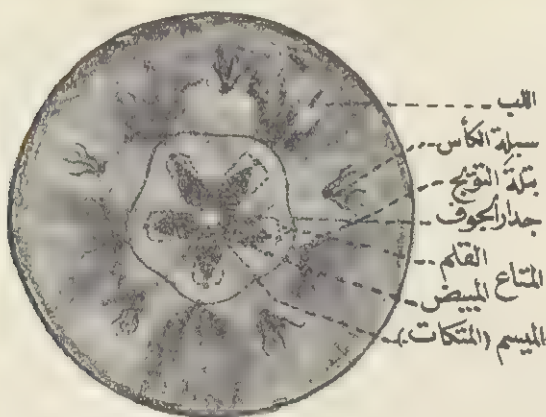 اللب
سبلة الكأس
بتلة التويج
جدار الجوف
القلم
المتاع المبيض
الميسم (المتكات)